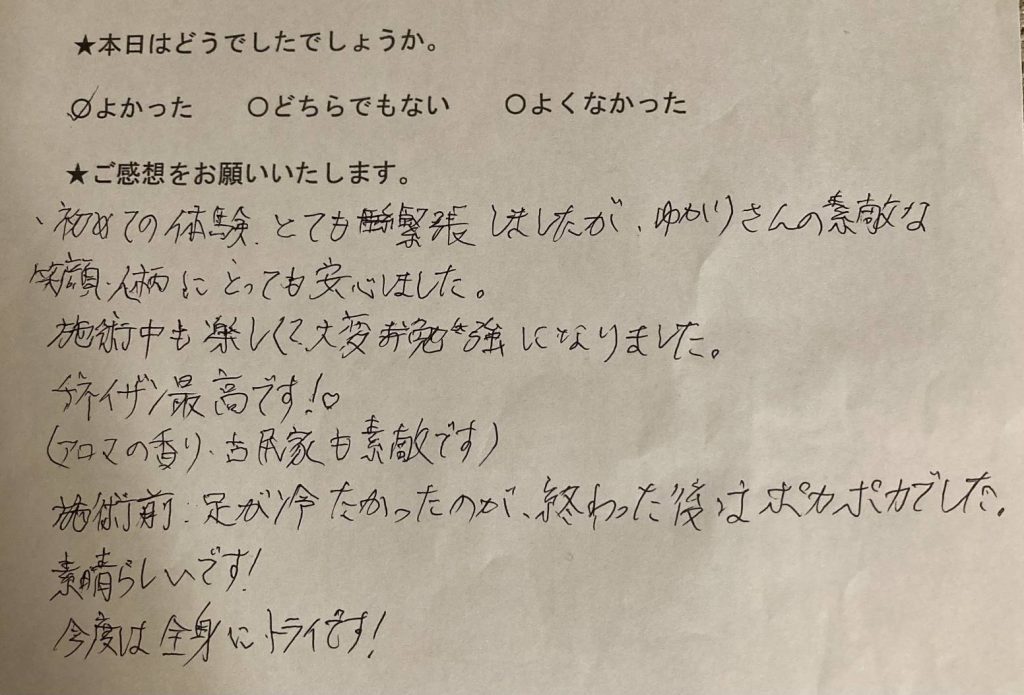 ★本日はどうでしたでしょうか。
〇よかった 〇どちらでもない 〇よくなかった
★ご感想をお願いいたします。
、初めての体験、とても緊張しましたが、ゆかりさんの素敵な
笑顔・人柄にとっても安心しました。
施術中も楽しくて、大変お勉強になりました。
チネイザン最高です!♡
(アロマの香り・古民家も素敵です)
施術前:足が冷たかったのが、終わった後はポカポカでした。
素晴らしいです!
今度は全身にトライです!